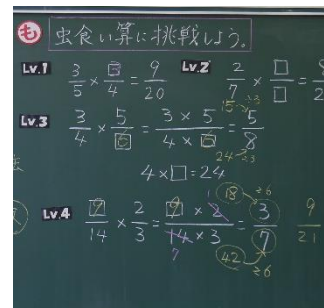 も 虫食い算に挑戦しよう。
Lv.1 3/5 × 3/4 = 9/20 Lv.2 2/7 × □/□ =
15 ÷3
Lv.3 3/4 × 5/6 = 3×5/4×6 = 5/8
24 ÷3
4×□=24
18 ÷6
Lv.4 9/14 × 2/3 = 9×2/14×3 = 3/7 9/21
1
7 42 ÷6